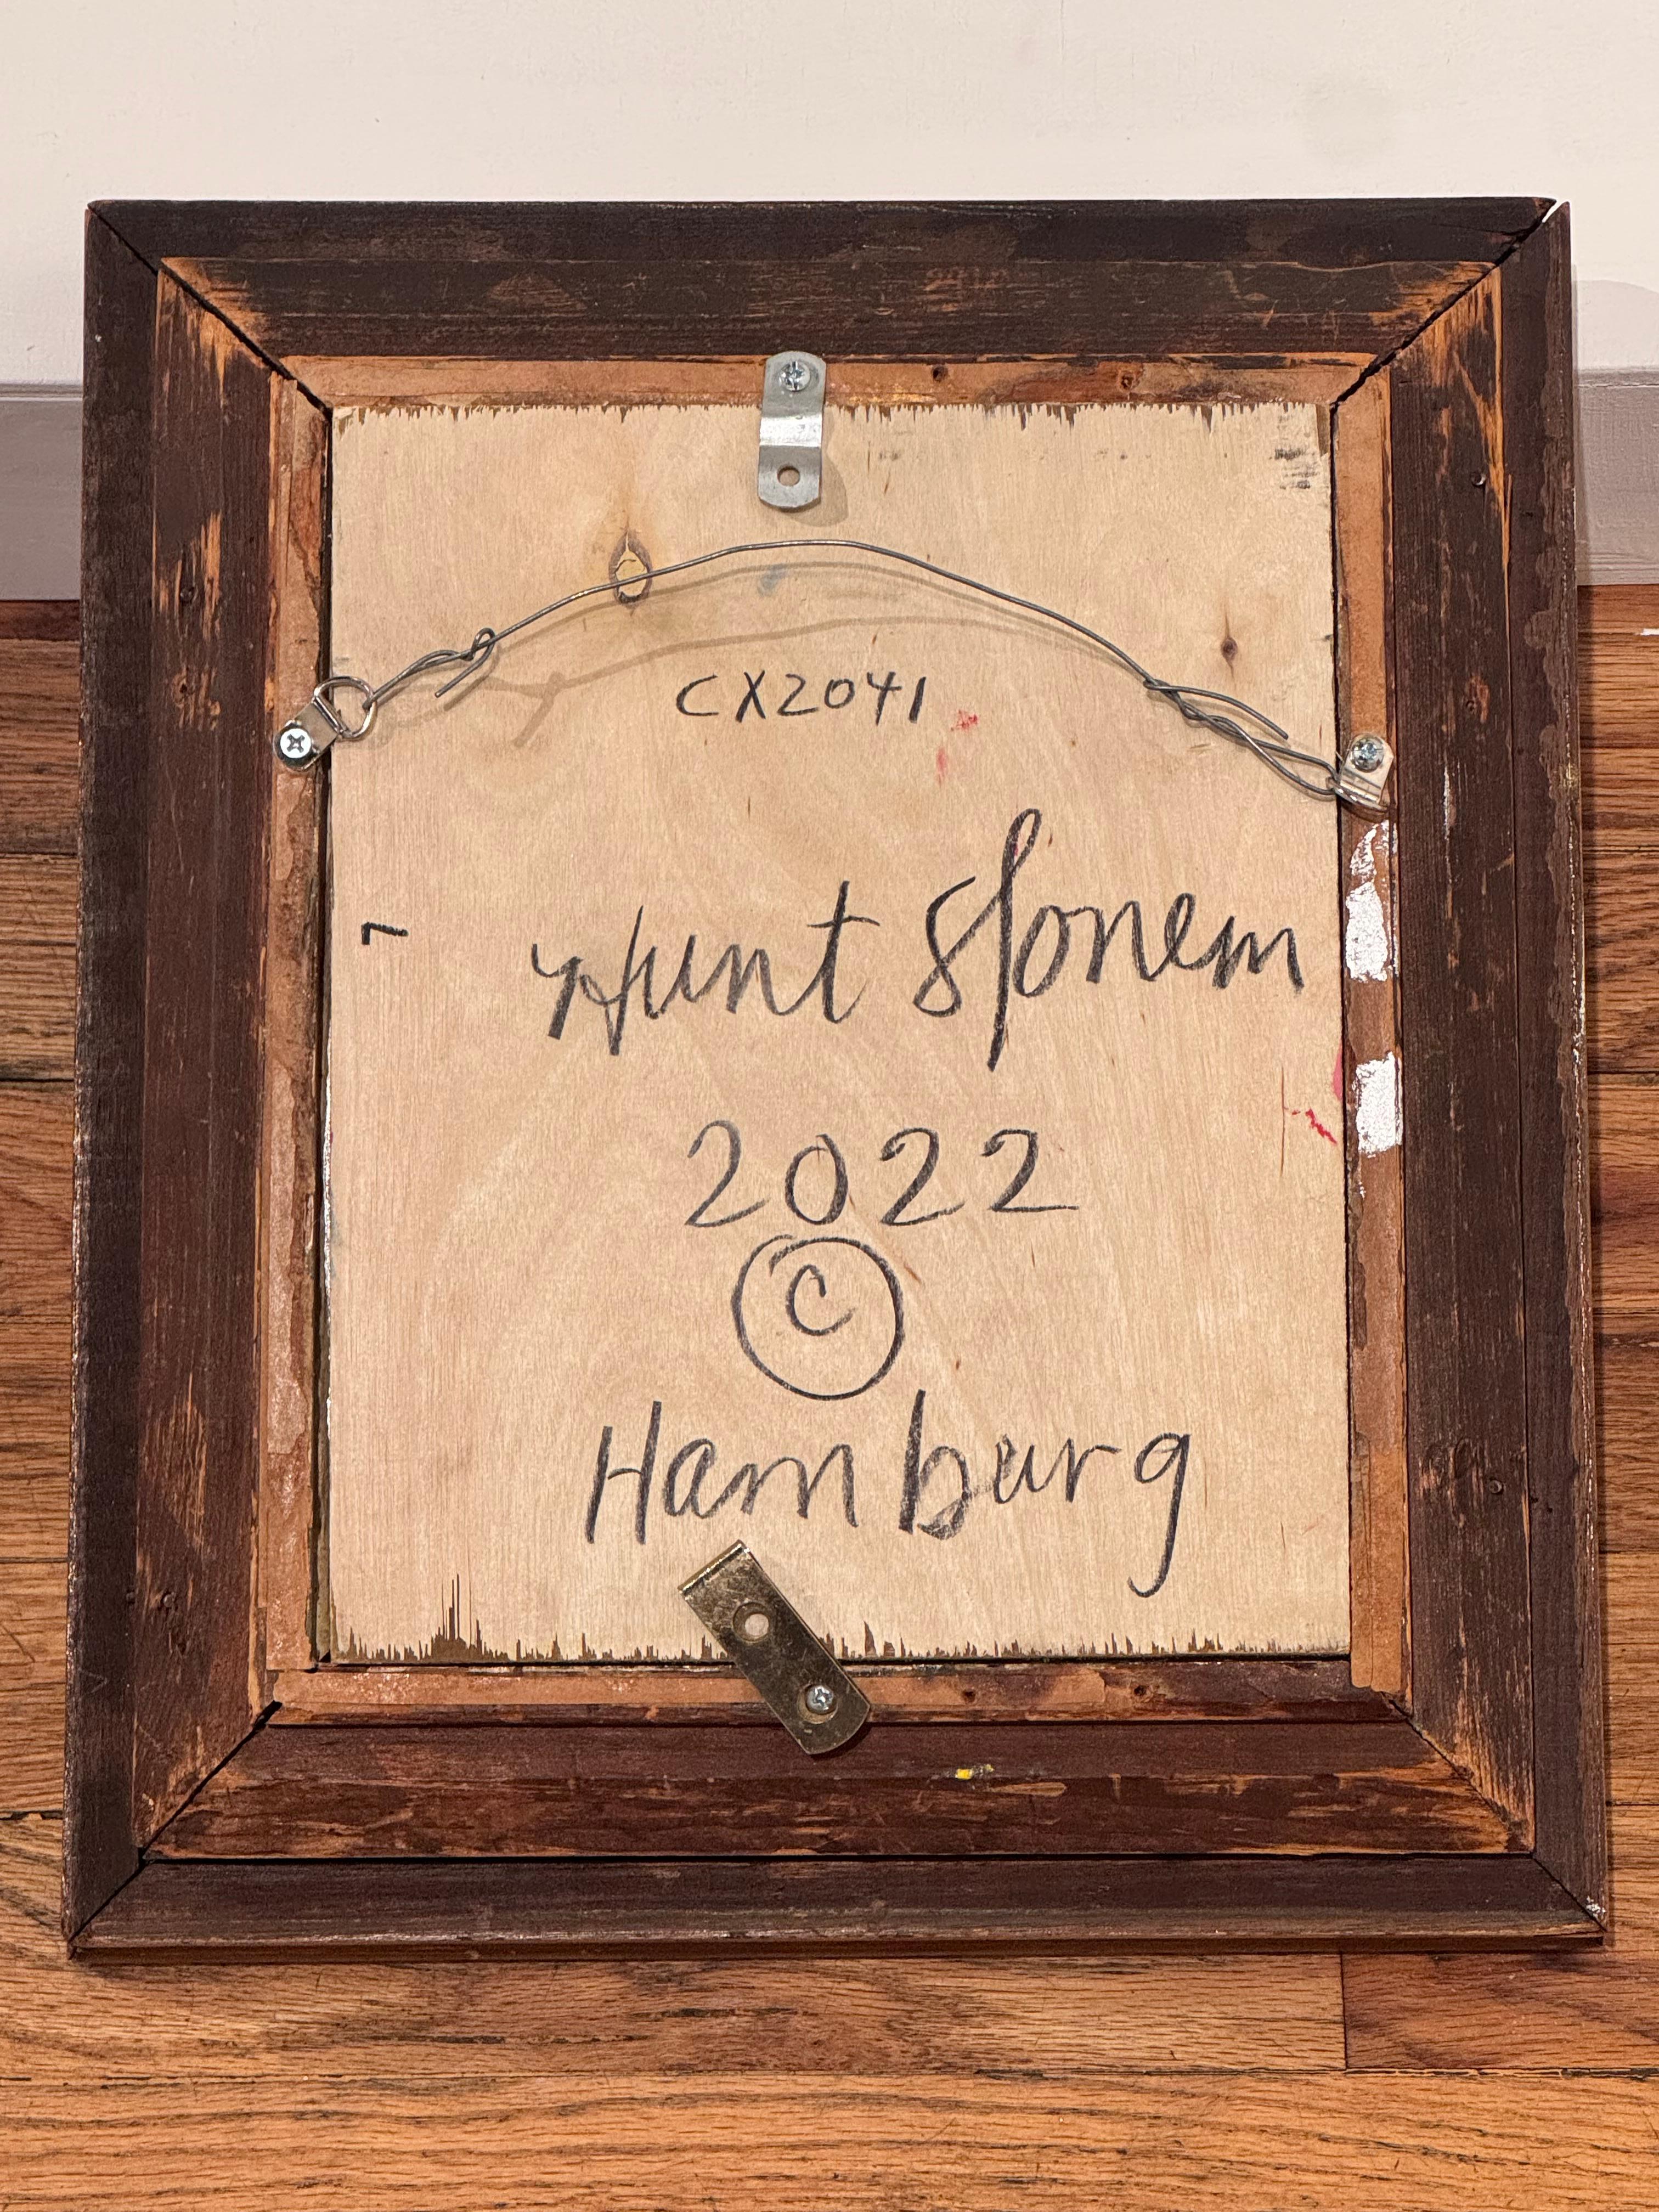 CX2041
Hunt Slonem
2022
©
Hamburg